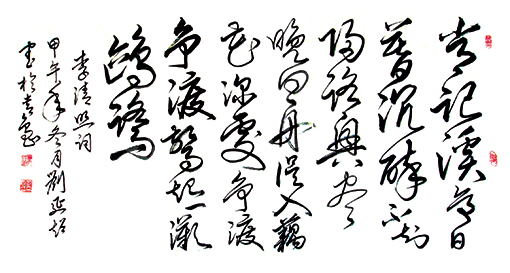 常記溪亭日
暮沉醉不知
歸路興盡
晚回舟誤入藕
花深處爭渡
爭渡驚起一灘
鷗鷺
李清照詞
甲午年冬月劉
書於